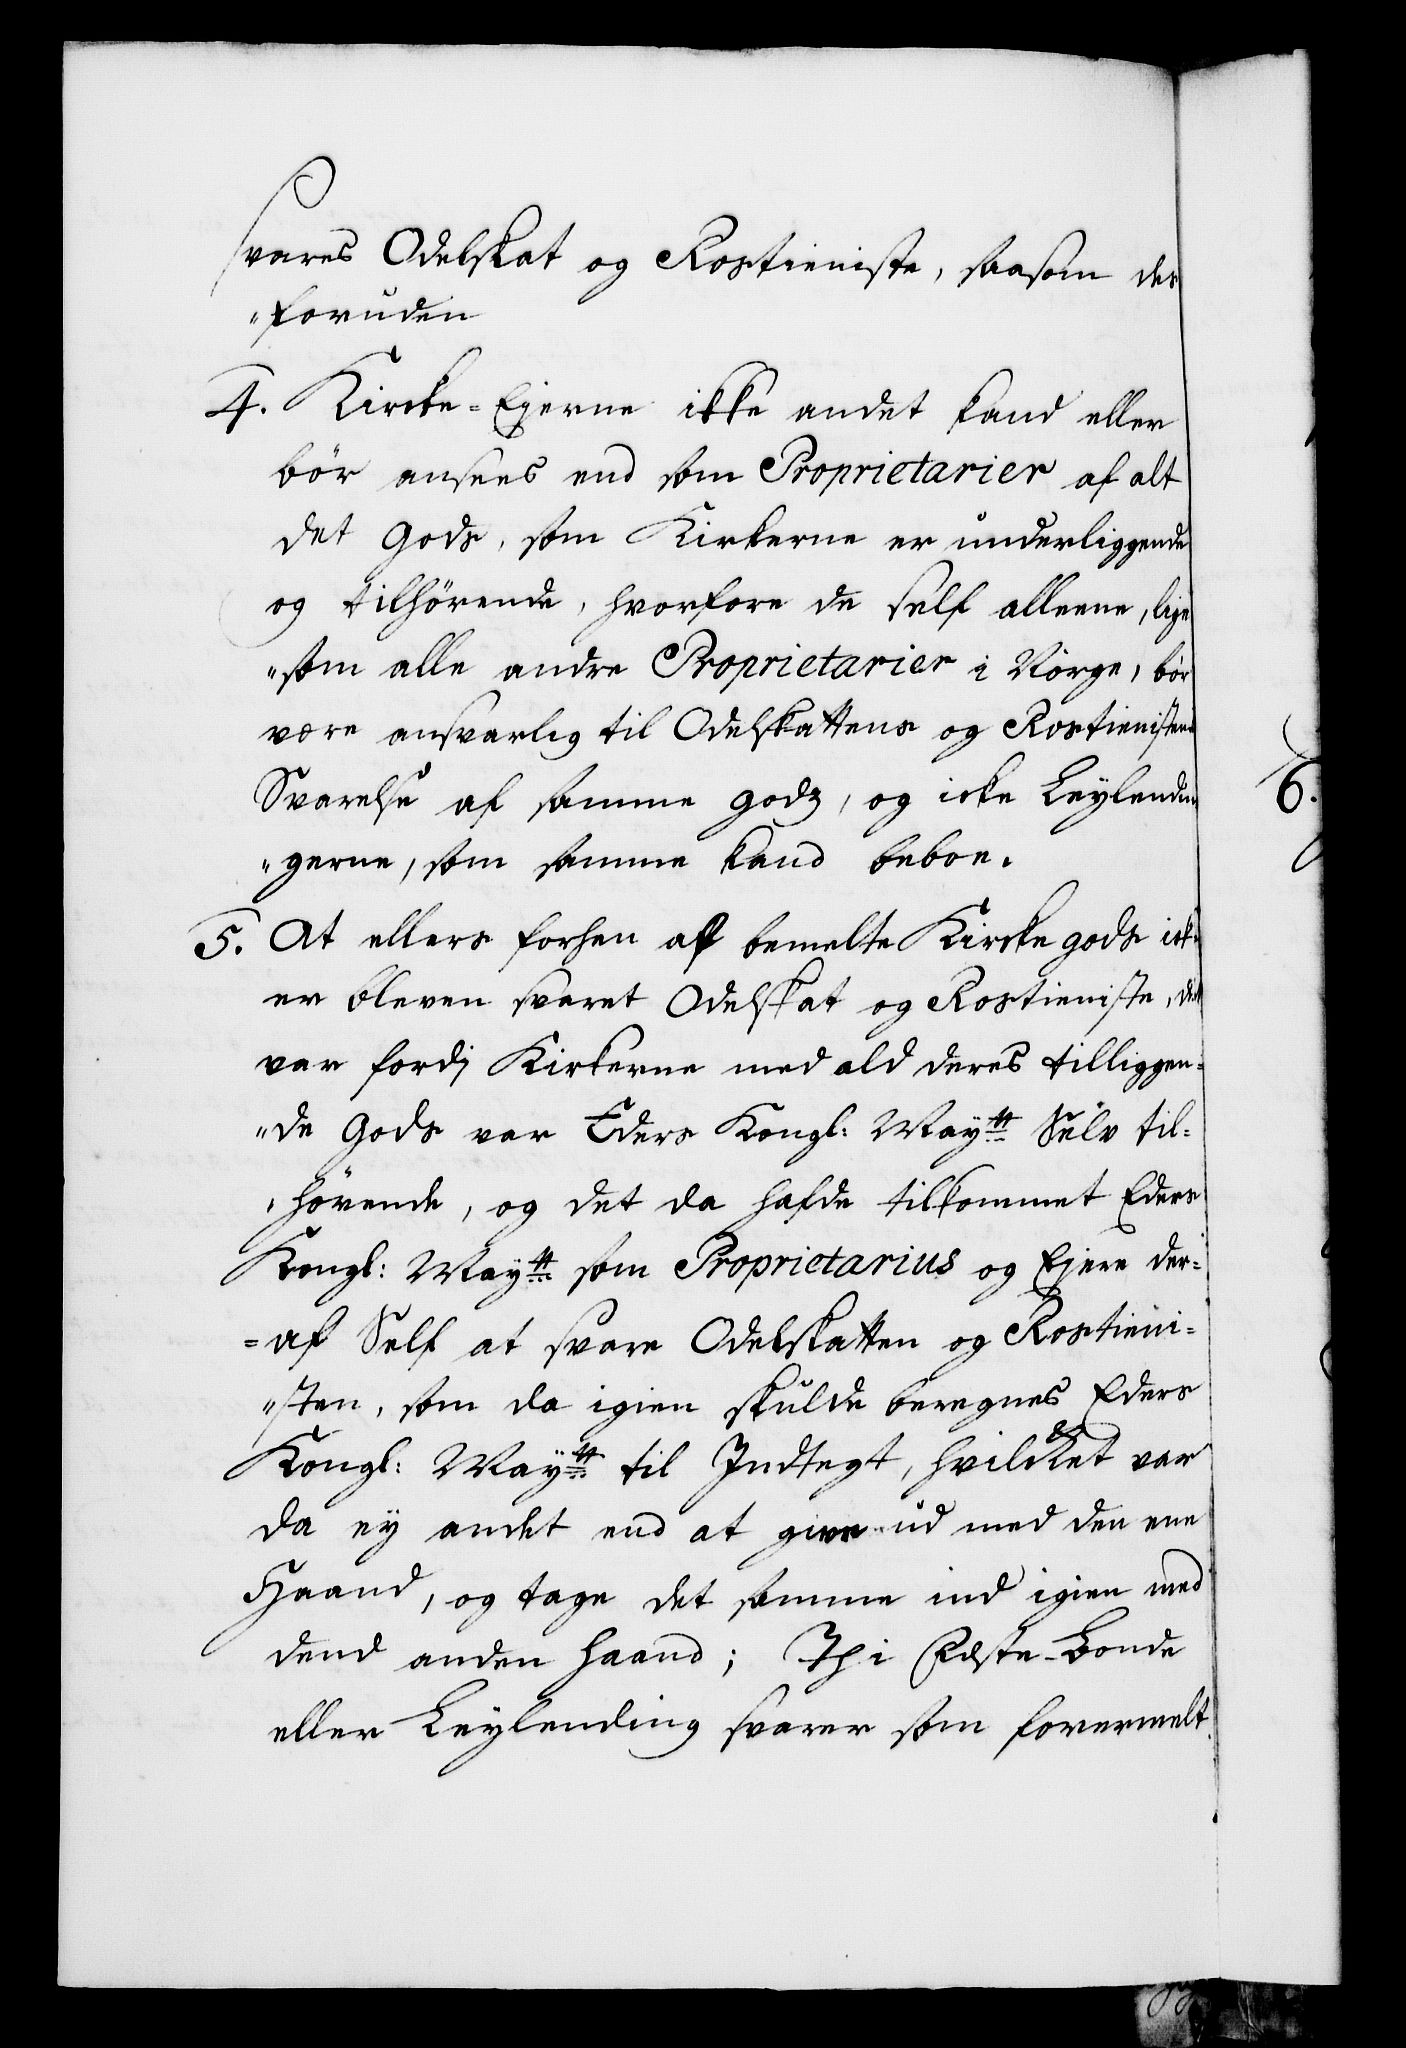 svares Odelskat og Rostieniste, saasom des
"foruden
4. Kircke-Ejerne ikke andet kand eller
bör ansees end som Proprietarier af alt
det Gods, som Kirkerne er underliggende
og tilhörende, hvorfore de self alleene, lige
"som alle andre Proprietarier i Norge, bör
være ansvarlig til Odelskattens og Rostienistens
Svarelse af samme godz, og icke Leylendin
"gerne, som samme kand beboe.
5. At ellers forhen af bemelte Kircke gods ick
er bleven svaret Odelskat og Rostieniste, det
var fordj Kirkerne med ald deres tilliggen=
"de Gods var Eders Kongl: Maytt Selv til=
"hörende, og det da hafde tilkommet Eders
Kongl: Maytt som Proprietarius og Ejere der=
=af Self at svare Odelskatten og Rostieni=
"sten, som da igien skulde beregnes Eders
Kongl: Maytt til Indtegt, hvilcket var
da ey andet end at give ud med den ene
Haand, og tage det samme ind igien med
dend anden Haand; Thi Fæste-Bonde
eller Leylending svarer som formelt
6.